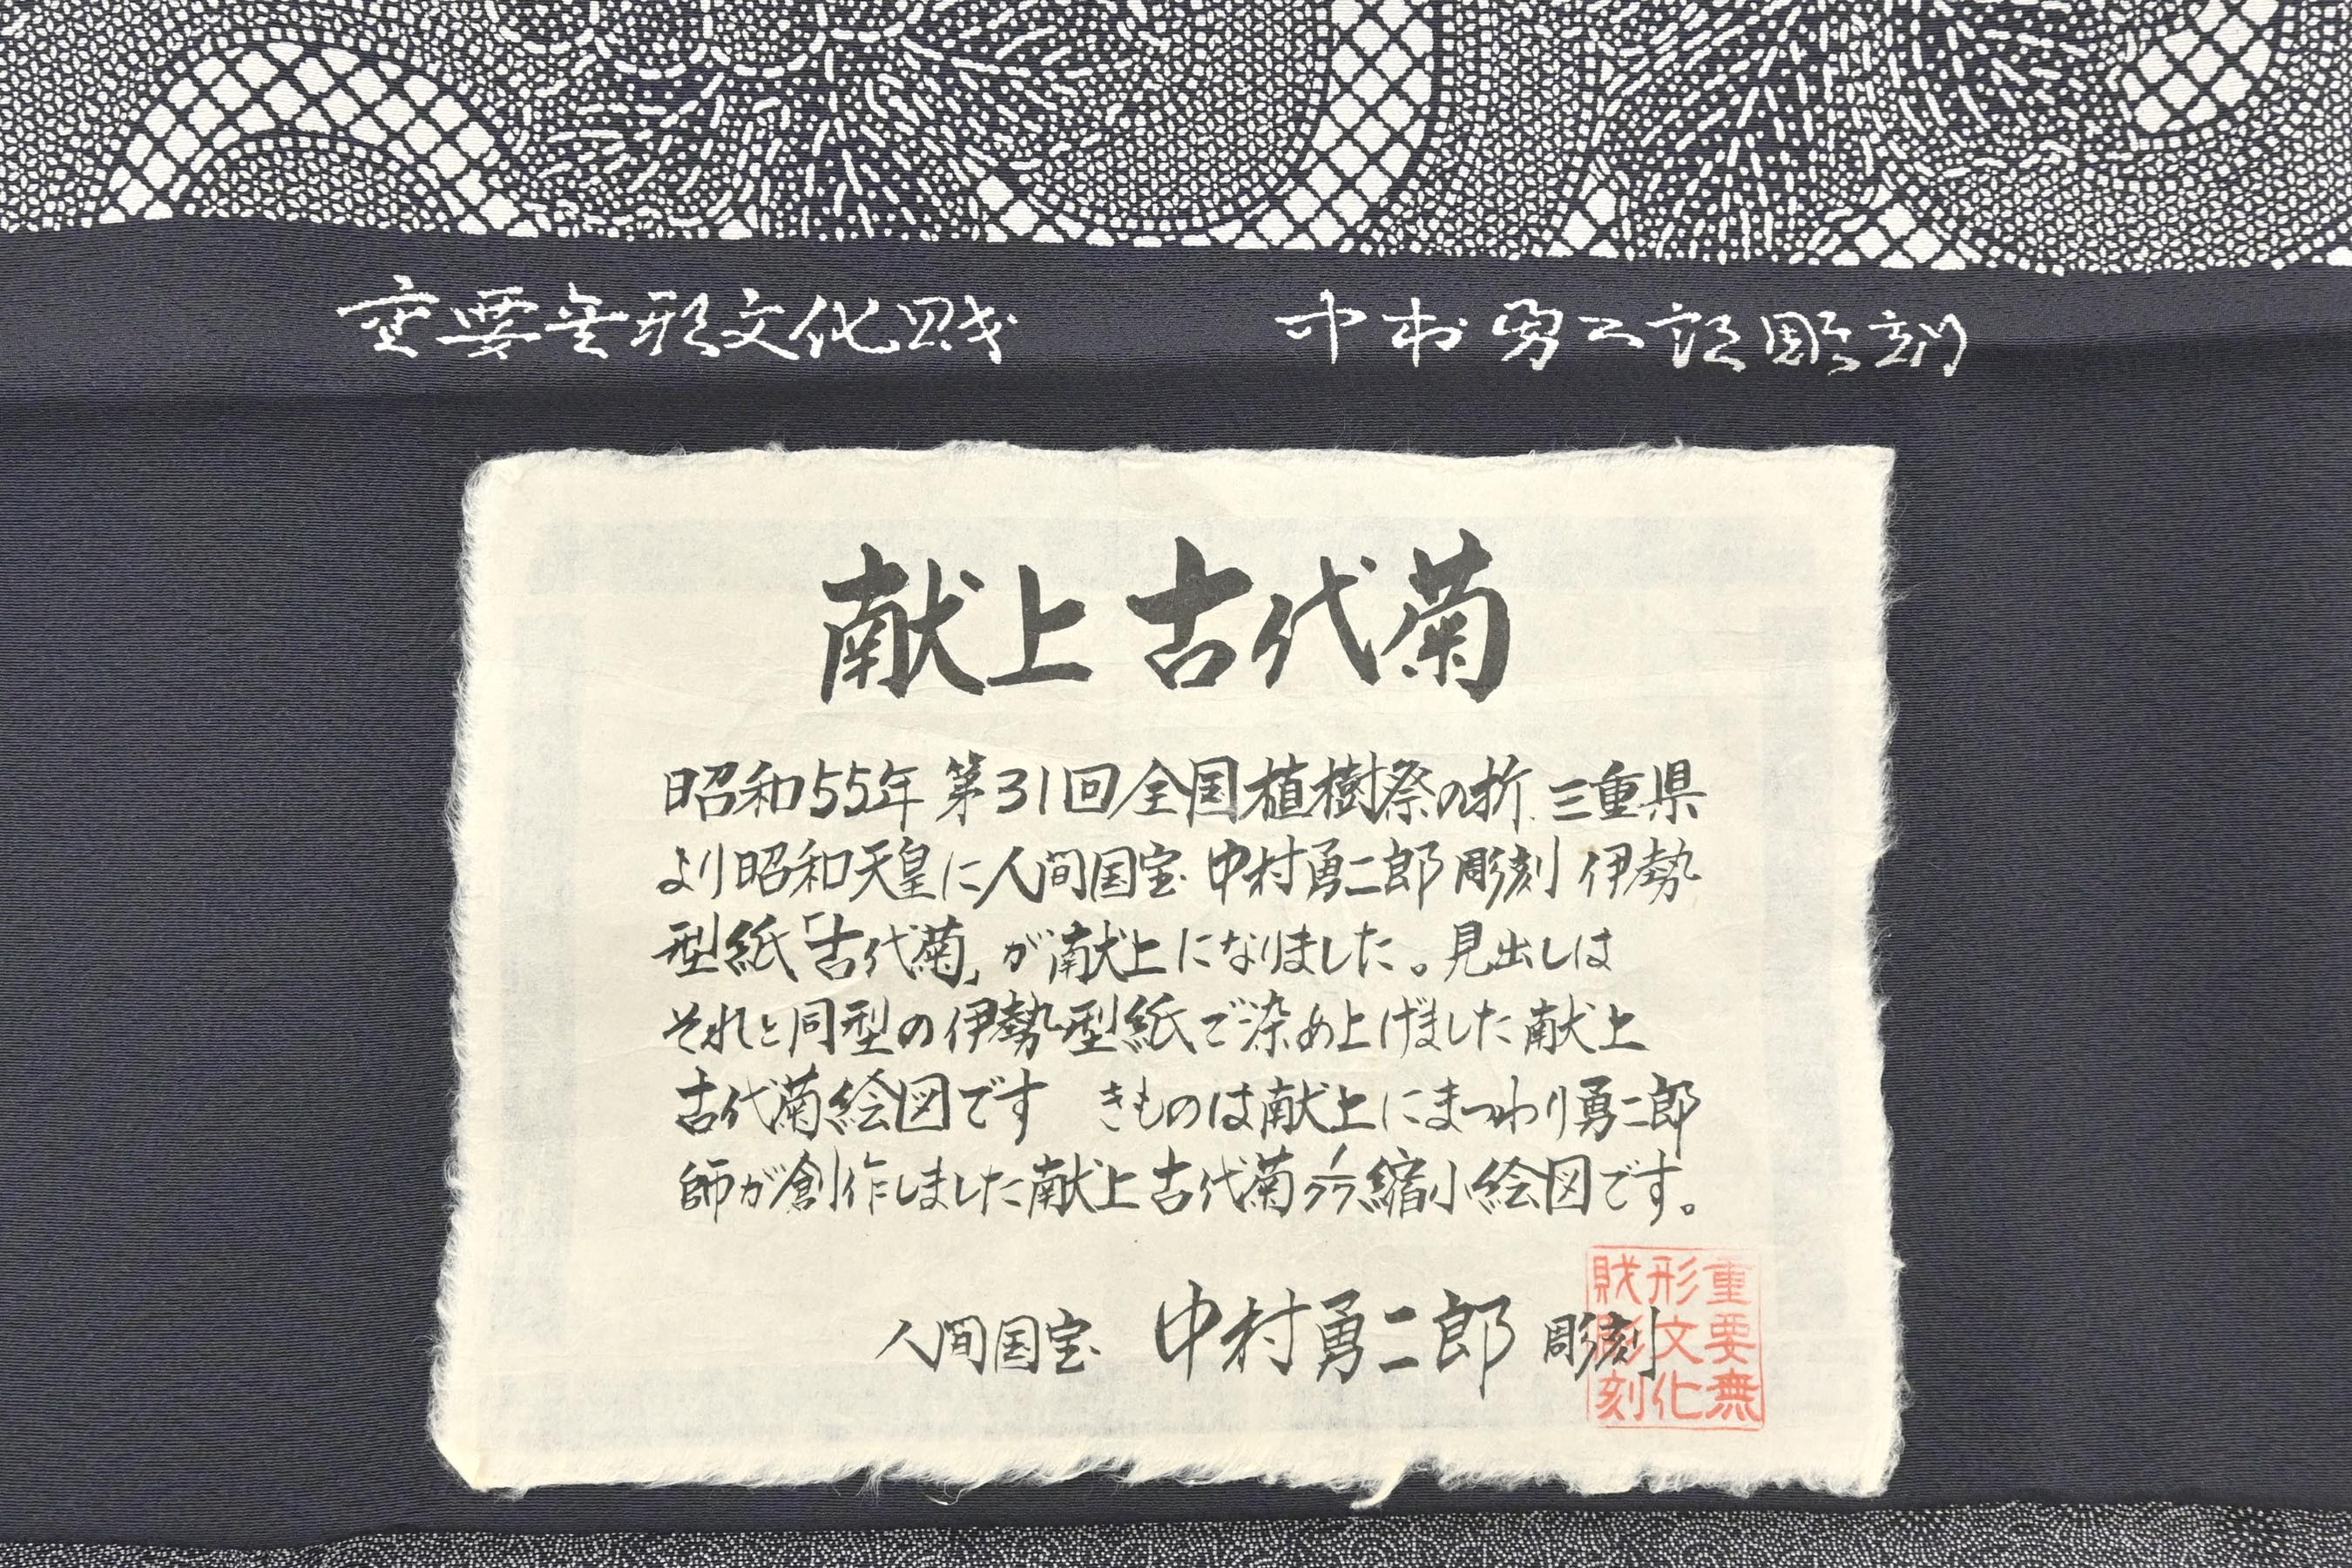 重要無形文化財 中村勇二郎彫刻
献上 古代菊
昭和55年 第31回全国植樹祭の折 三重県
より昭和天皇に人間国宝 中村勇二郎 彫刻 伊勢
型紙「古代菊」が献上になりました。見出しは
それと同型の伊勢型紙で染め上げました献上
古代菊絵図です きものは献上にまつわり勇二郎
師が創作しました献上古代菊 縮小絵図です。
人間国宝 中村勇二郎 彫刻
重要無
形文化
財彫刻